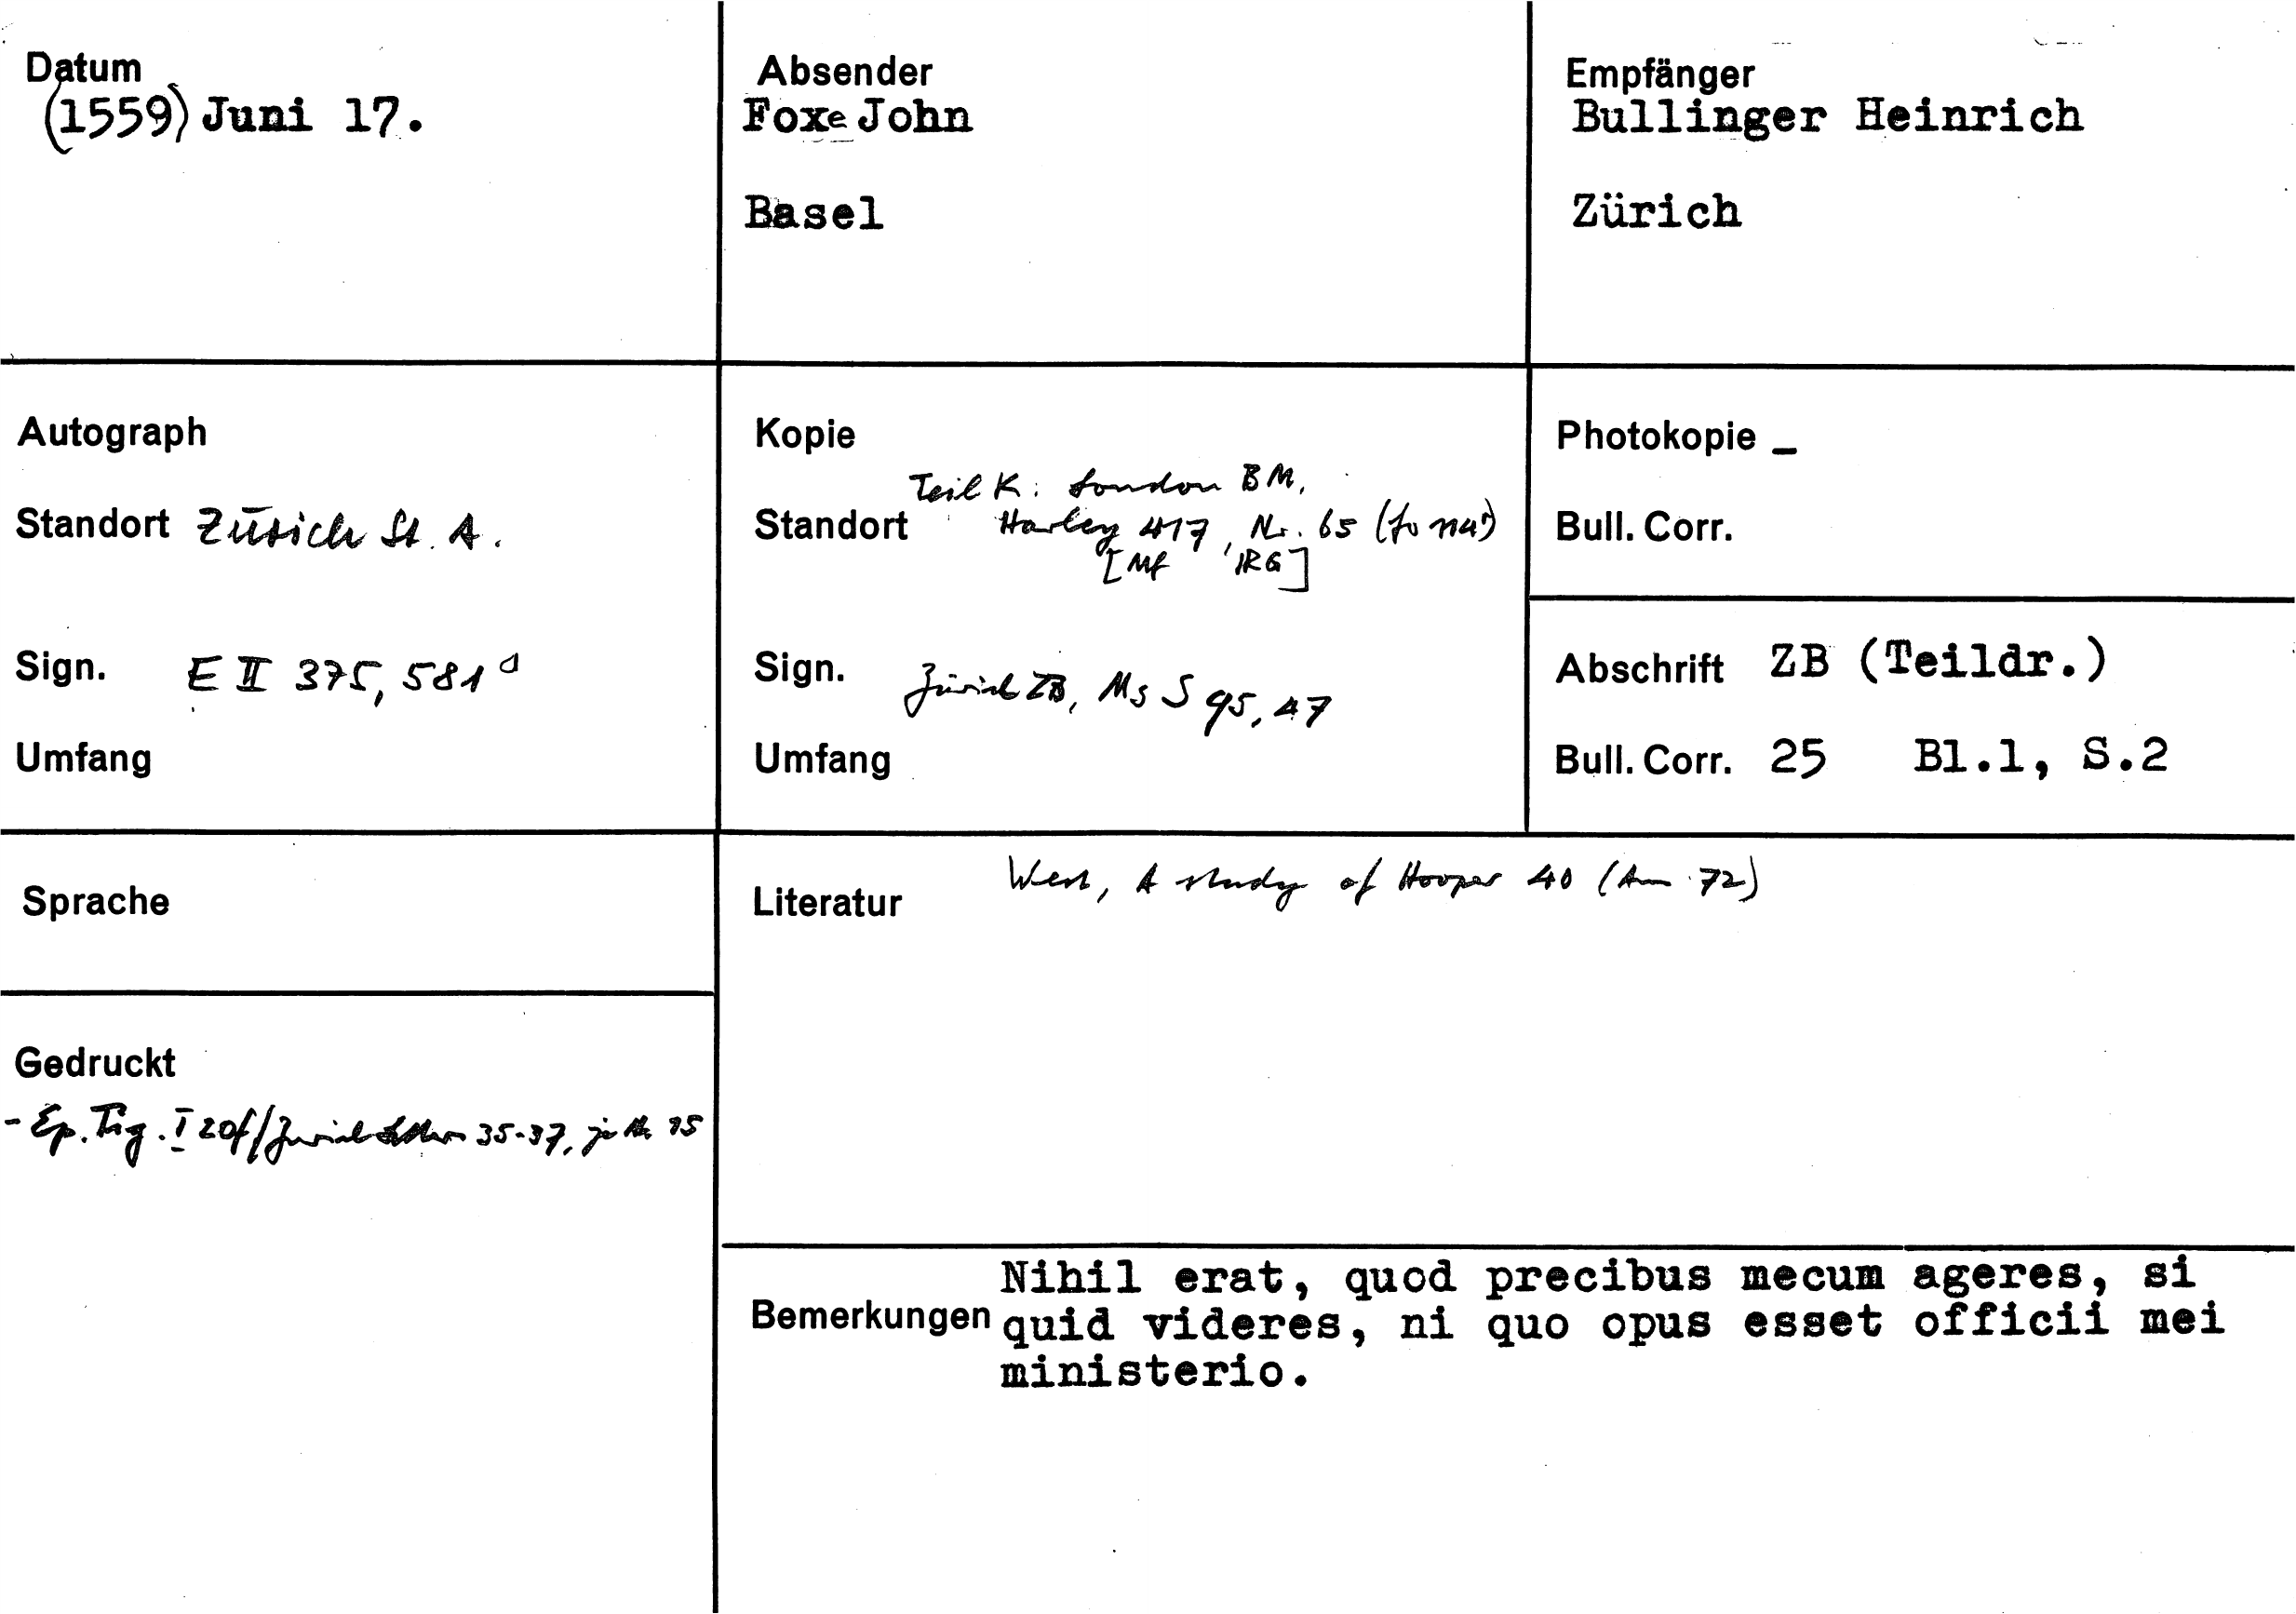 Datum
(1559) Juni 17.
Absender
Foxe John
Basel
Empfänger
Bullinger Heinrich
Zürich
Autograph
Standort Zürich St. A.
Sign. E II 375, 581a
Umfang
Kopie
Teil K: London BM,
Standort Harley 417, Nr. 65 (fo 114r)
[Mf IRG]
Sign. Zürich ZB, Ms S 95, 47
Umfang
Photokopie –
Bull. Corr.
Abschrift ZB (Teildr.)
Bull. Corr. 25 Bl.1, S.2
Sprache
Gedruckt
- Ep. Tig. I 20f/Zurich Letters 35-37, je Nr. 15
Literatur West, A study of Hooper 40 (Anm. 72)
Bemerkungen
Nihil erat, quod precibus mecum ageres, si
quid videres, ni quo opus esset officii mei
ministerio.